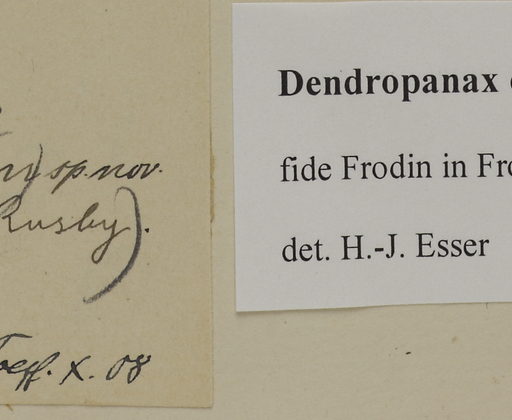 sp. nov.
Rusby).
X. 08
Dendropanax
fide Frodin in
det. H.-J. Esser